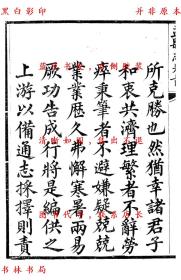 黑白影印 并非原本
所克勝也然猶幸諸君子
和衷共濟理繁者不辭勞
瘁秉筆者不避嫌疑兢兢
業業歷久弗懈寒暑兩易
厥功告成行將是編供之
上游以備通志採擇則責
书林书局